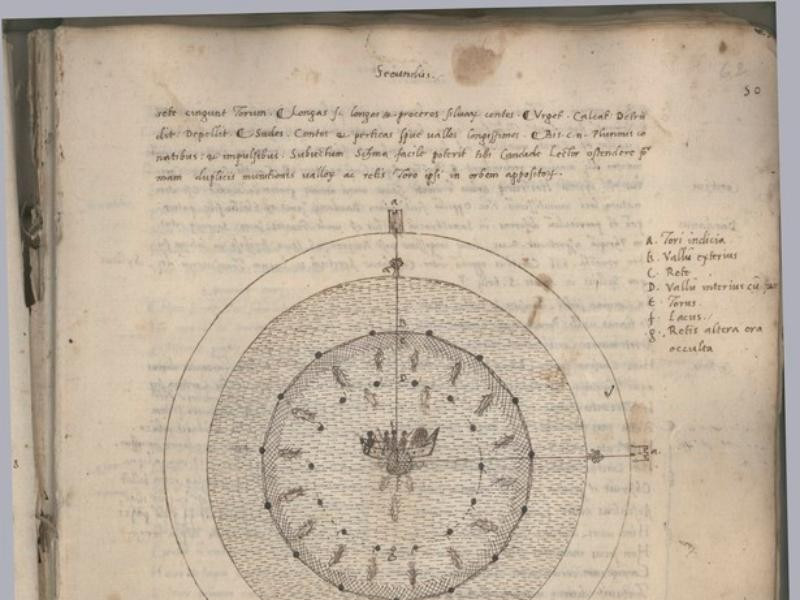 Secundus.
62
50
rete cingunt Torum. Longas s. longas & proceros silvaӡ contos. Urget. Calcat. Detru
dit. Depellit. Sudes. Contos & perticas seu vallos longissimos. Bis c.n. Plurimis co
natibus & impulsibus. Subiectum Schma facile poterit tibi Candide Lector ostendere
duplicis munitionis valloӡ ac retis Toro ipsi in orbem appositoӡ.
a
a. Tori indicia
b. Vallū exterius
C. Rete
D. Vallū interius cū
E. Torus
f. Lacus
g. Retis altera ora
occulta
a
b
c
D
f
a.
g
8